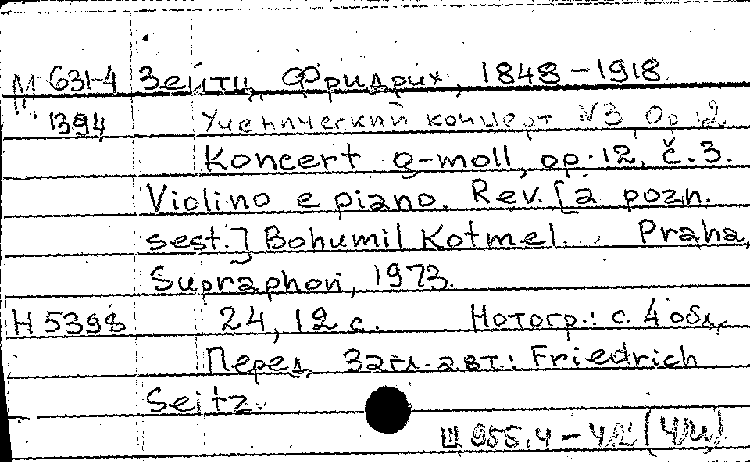 М 631-4 Зейтц, Фридрих, 1848-1918.
1394 Ученический концерт №3, Op. 12
Koncert g-moll, op. 12, č. 3.
Violino e piano. Rev. [a pozn.
sest.] Bohumil Kotmel. Praha,
Supraphon, 1973.
Н 5398 24, 12 с. Нотогр.: с. 4 обл.
Перед загл. авт.: Friedrich
Seitz.
Ш 955.4 -